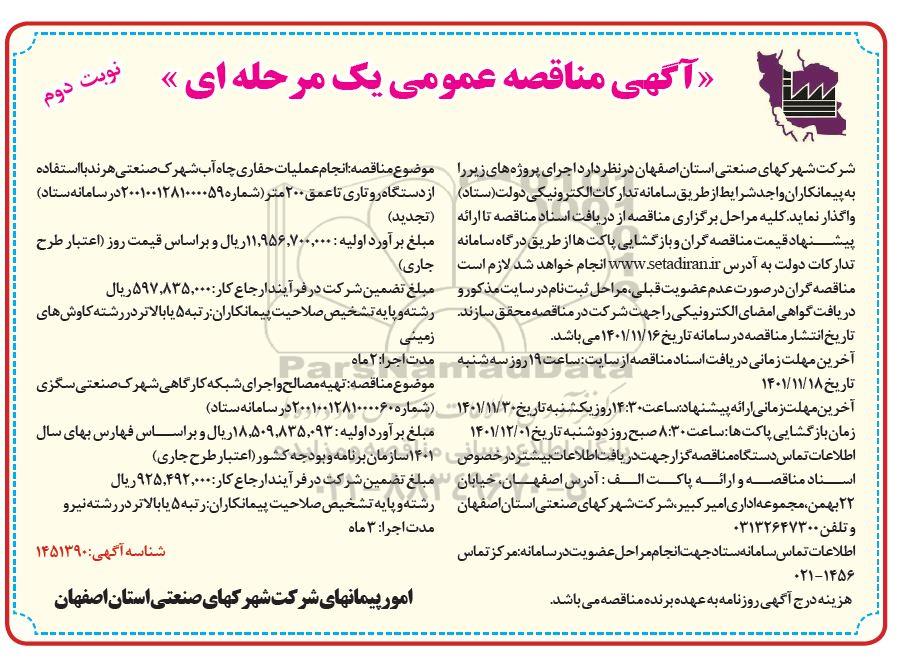 «آگهی مناقصه عمومی یک مرحله ای»
نوبت دوم
شرکت شهرکهای صنعتی استان اصفهان در نظر دارد اجرای پروژه های زیر را
به پیمانکاران واجد شرایط از طریق سامانه تدارکات الکترونیکی دولت (ستاد)
واگذار نماید. کلیه مراحل برگزاری مناقصه از دریافت اسناد مناقصه تا ارائه
پیشنهاد قیمت مناقصه گران و بازگشایی پاکت ها از طریق درگاه سامانه
تدارکات دولت به آدرس www.setadiran.ir انجام خواهد شد لازم است
مناقصه گران در صورت عدم عضویت قبلی، مراحل ثبت نام در سایت مذکور و
دریافت گواهی امضای الکترونیکی را جهت شرکت در مناقصه محقق سازند.
تاریخ انتشار مناقصه در سامانه تاریخ ۱۴۰۱/۱۱/۱۶ می باشد.
آخرین مهلت زمانی دریافت اسناد مناقصه از سایت: ساعت ۱۹ روز سه شنبه
تاریخ ۱۴۰۱/۱۱/۱۸
آخرین مهلت زمانی ارائه پیشنهاد: ساعت ۱۴:۳۰ روز یکشنبه تاریخ ۱۴۰۱/۱۱/۳۰
زمان بازگشایی پاکت ها: ساعت ۸:۳۰ صبح روز دوشنبه تاریخ ۱۴۰۱/۱۲/۰۱
اطلاعات تماس دستگاه مناقصه گزار جهت دریافت اطلاعات بیشتر در خصوص
اسناد مناقصه و ارائه پاکت الف: آدرس اصفهان، خیابان
۲۲ بهمن، مجموعه اداری امیر کبیر، شرکت شهرکهای صنعتی استان اصفهان
و تلفن ۰۳۱۳۲۶۴۷۳۰۰
اطلاعات تماس سامانه ستاد جهت انجام مراحل عضویت در سامانه: مرکز تماس
۰۲۱-۱۴۵۶
هزینه درج آگهی روزنامه به عهده برنده مناقصه می باشد.
موضوع مناقصه: انجام عملیات حفاری چاه آب شهرک صنعتی هرند با استفاده
از دستگاه روتاری تا عمق ۲۰۰ متر (شماره ۲۰۰۱۰۰۱۲۸۱۰۰۰۰۵۹ در سامانه ستاد)
(تجدید)
مبلغ برآورد اولیه: ۱۱,۹۵۶,۷۰۰,۰۰۰ ریال و براساس قیمت روز (اعتبار طرح
جاری)
مبلغ تضمین شرکت در فرآیند ارجاع کار: ۵۹۷,۸۳۵,۰۰۰ ریال
رشته و پایه تشخیص صلاحیت پیمانکاران: رتبه ۵ یا بالاتر در رشته کاوش های
زمینی
مدت اجرا: ۲ ماه
موضوع مناقصه: تهیه مصالح و اجرای شبکه کارگاهی شهرک صنعتی سگزی
(شماره ۲۰۰۱۰۰۱۲۸۱۰۰۰۰۶۰ در سامانه ستاد)
مبلغ برآورد اولیه: ۱۸,۵۰۹,۸۳۵,۰۹۳ ریال و براساس فهارس بهای سال
۱۴۰۱ سازمان برنامه و بودجه کشور (اعتبار طرح جاری)
مبلغ تضمین شرکت در فرآیند ارجاع کار: ۹۲۵,۴۹۲,۰۰۰ ریال
رشته و پایه تشخیص صلاحیت پیمانکاران: رتبه ۵ یا بالاتر در رشته نیرو و
مدت اجرا: ۳ ماه
شناسه آگهی: ۱۴۵۱۳۹۰
امور پیمانهای شرکت شهرکهای صنعتی استان اصفهان
ParsNamadData
پایگاه اطلاع رسانی مناقصه و مزایده
۰۲۱-۸۸۳۴۹۶۷۰-۵